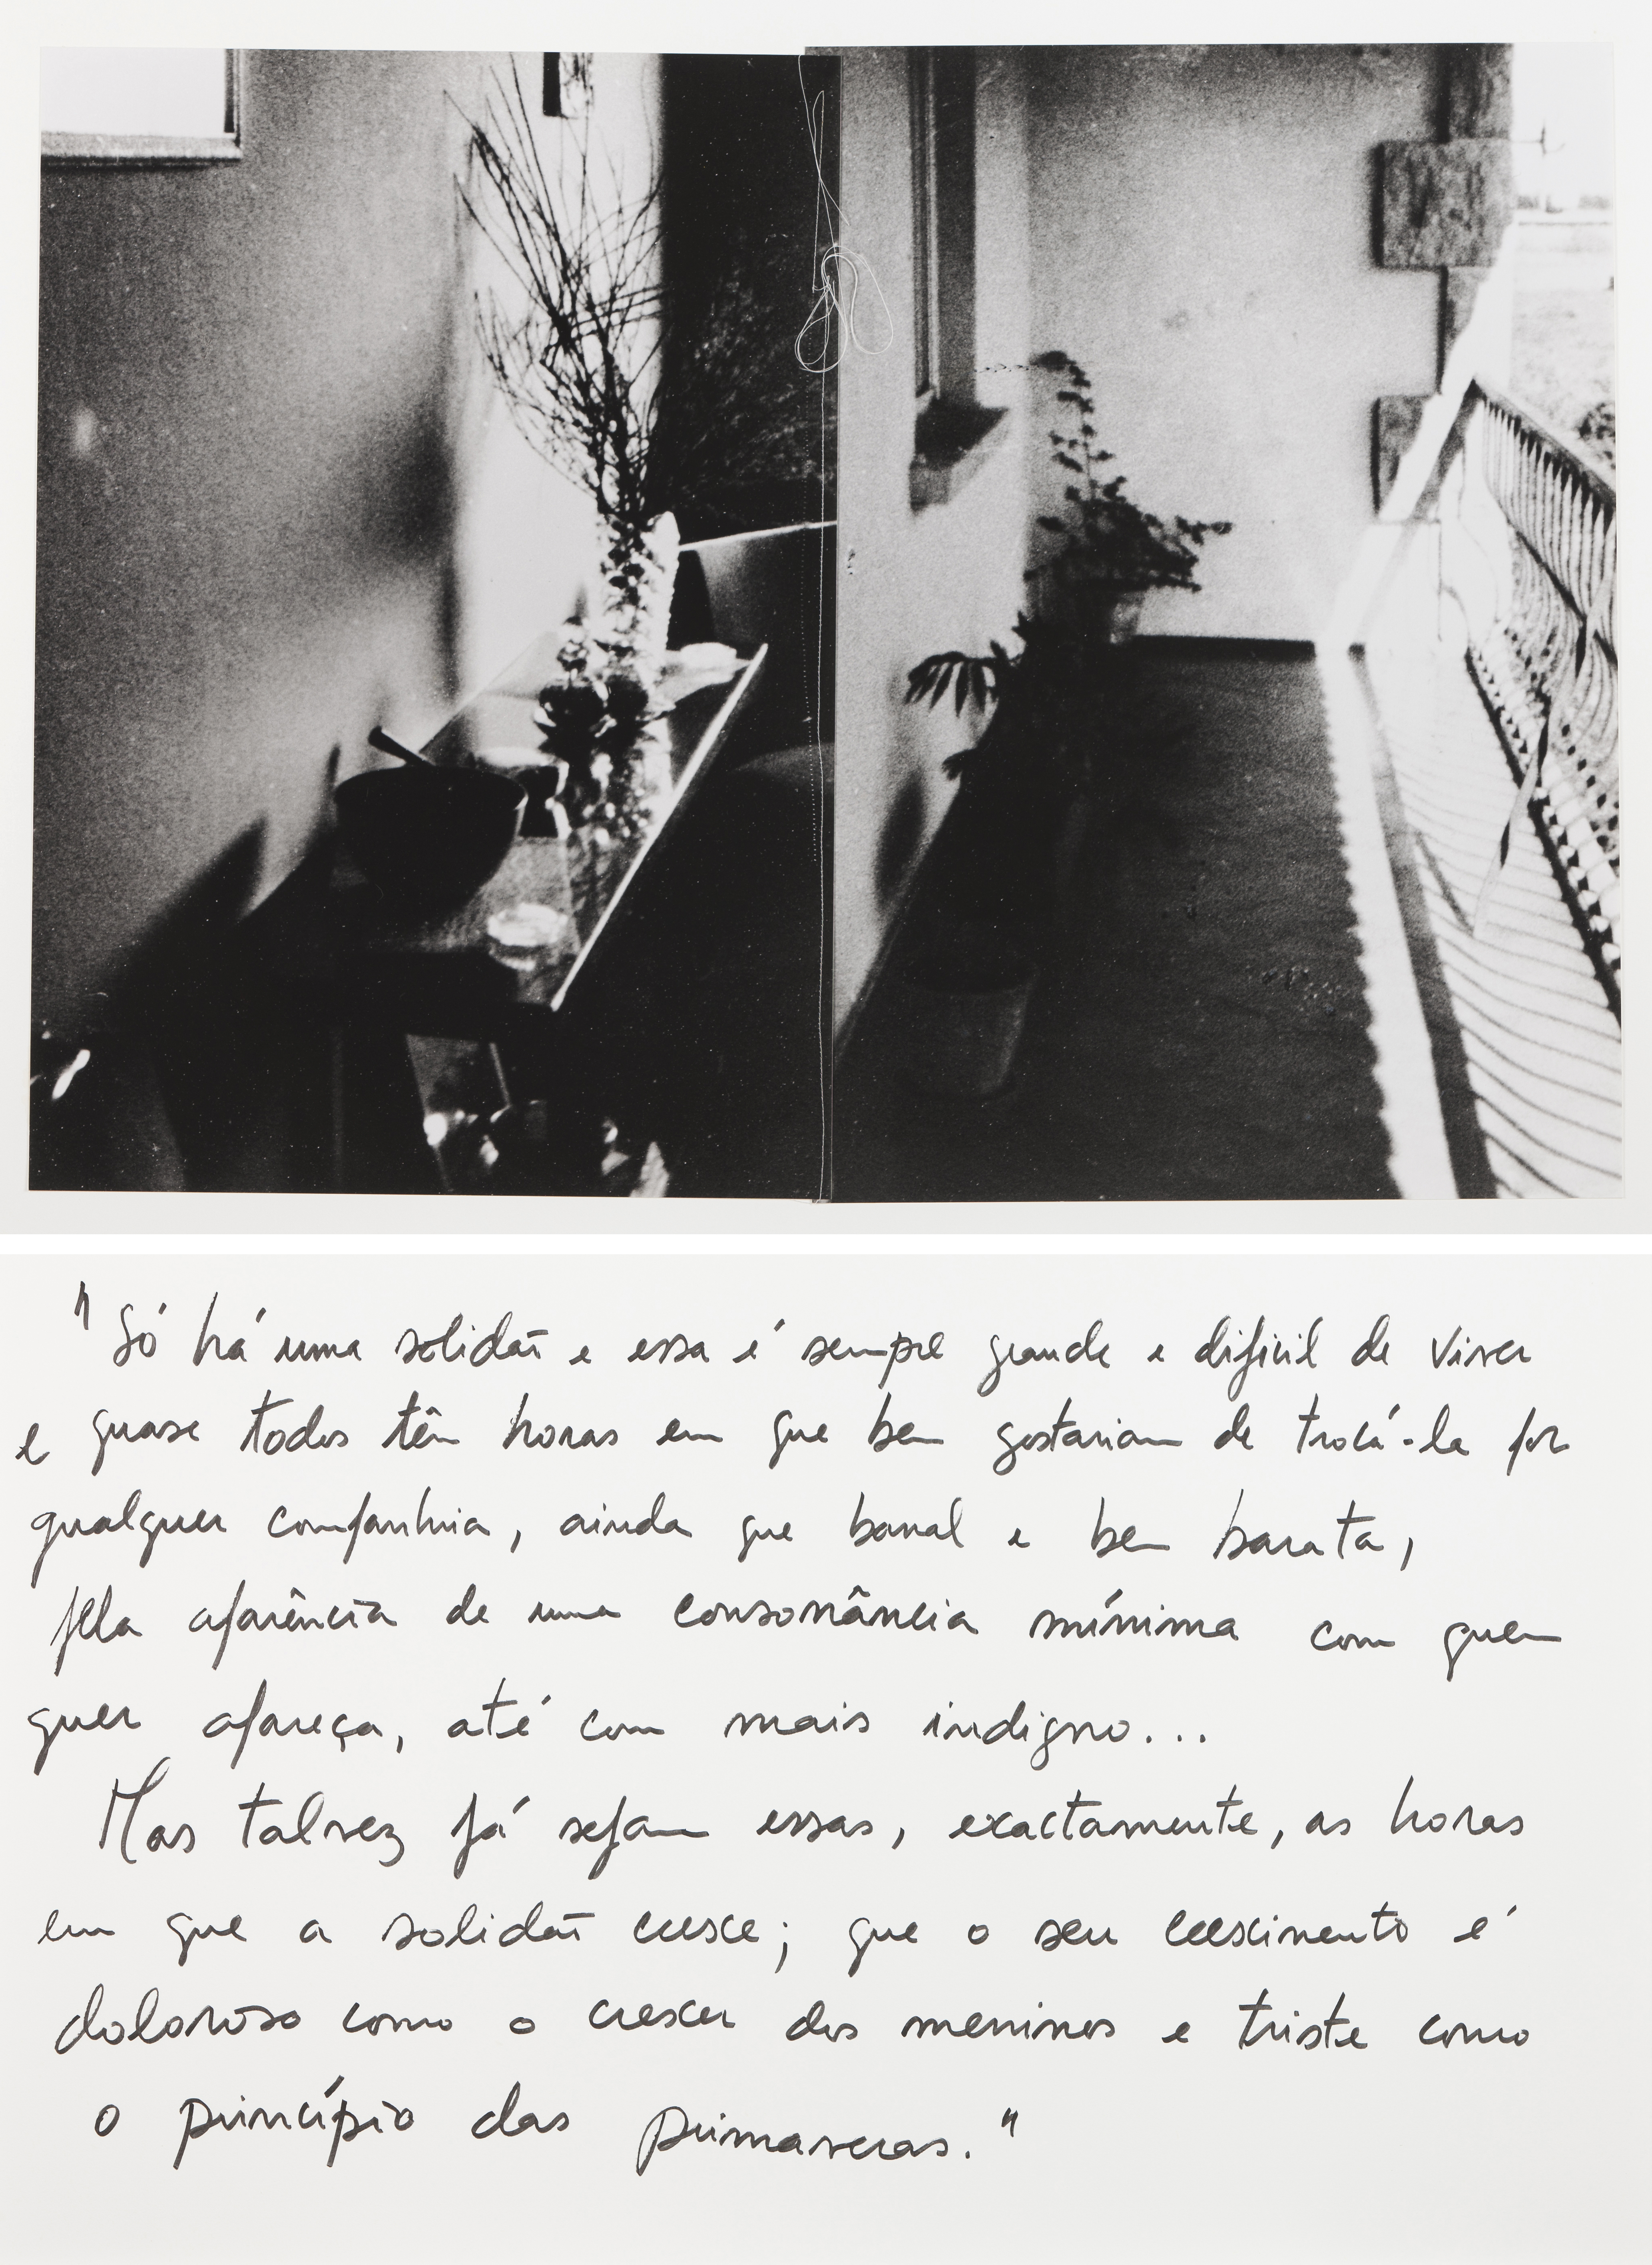 "Só há uma solidão e essa é sempre grande e difícil de viver
e quase todos têm horas em que bem gostariam de trocá-la por
qualquer companhia, ainda que banal e bem barata,
pela aparência de uma consonância mínima com quem
quer apareça, até com mais indigno...
Mas talvez já sejam essas, exactamente, as horas
em que a solidão cresce; que o seu crescimento é
doloroso como o crescer dos meninos e triste como
o princípio das primaveras."